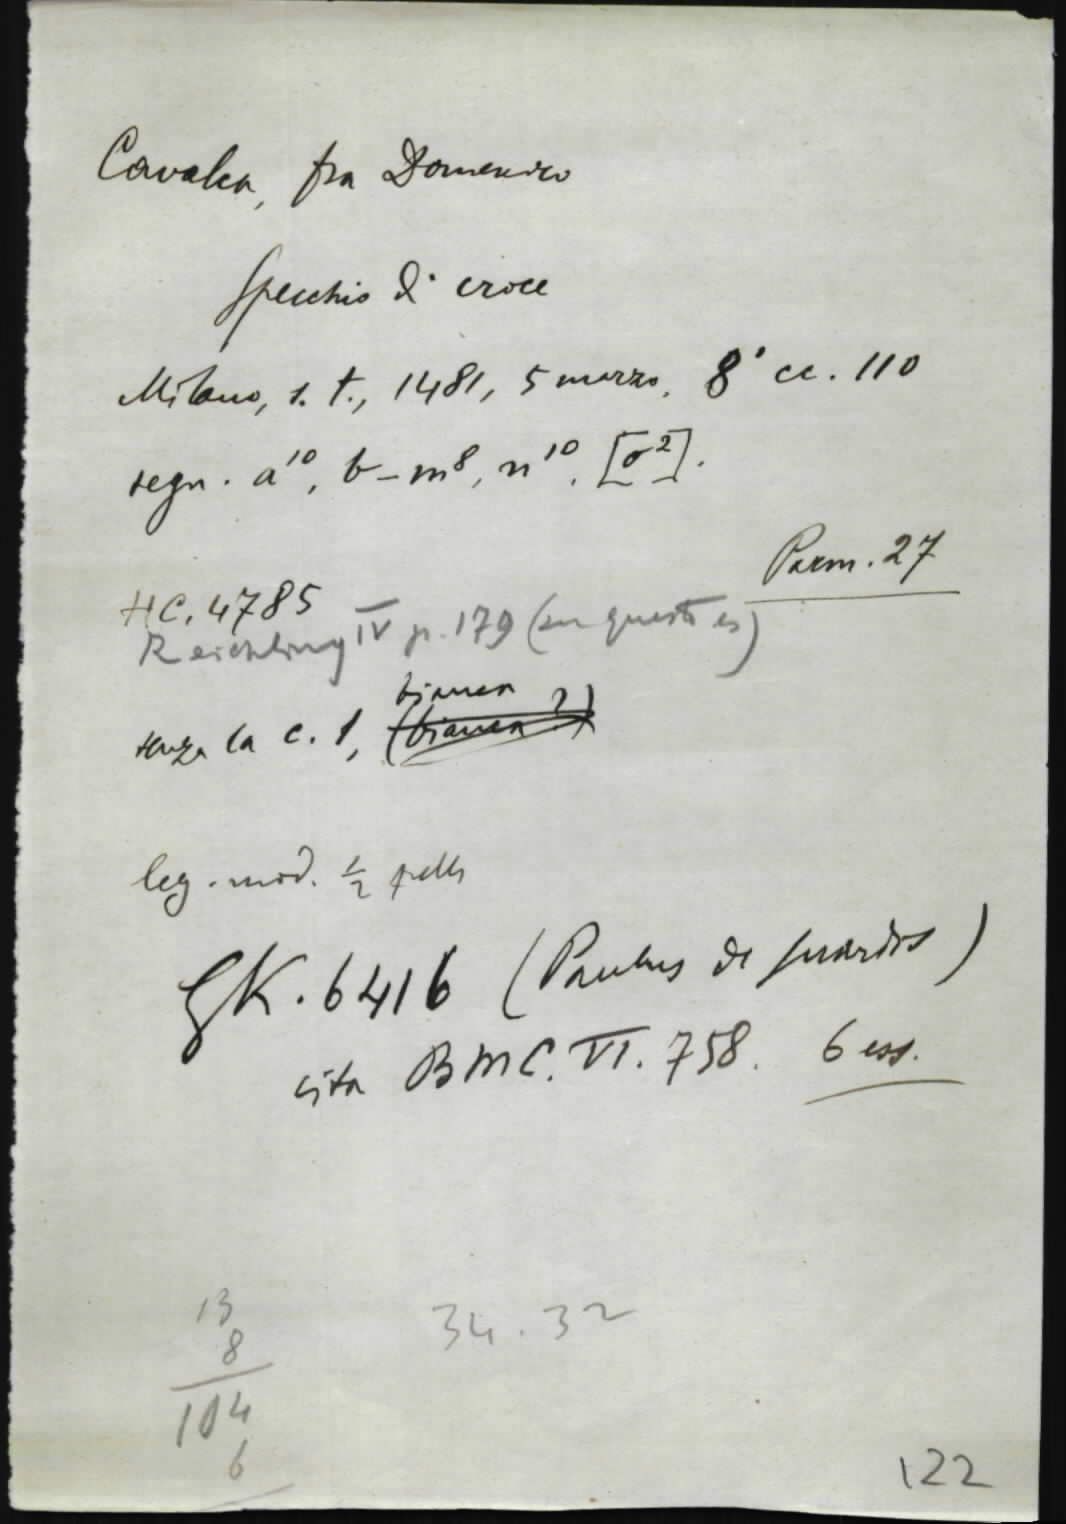 Cavalca, fra Domenico
Specchio di croce
Milano, s. t., 1481, 5 marzo, 8° cc. 110
segn. a¹⁰, b-m⁸, n¹⁰, [o²].
Parm. 27
HC. 4785
Reichling IV p. 179 (su questo es)
bianca
senza la c. 1, (bianca?)
leg. mod. ½ pelle
GK. 6416 (Paulus de Suardis)
cita BMC. VI. 758. 6 ess.
13
8
34.32
104
6
122